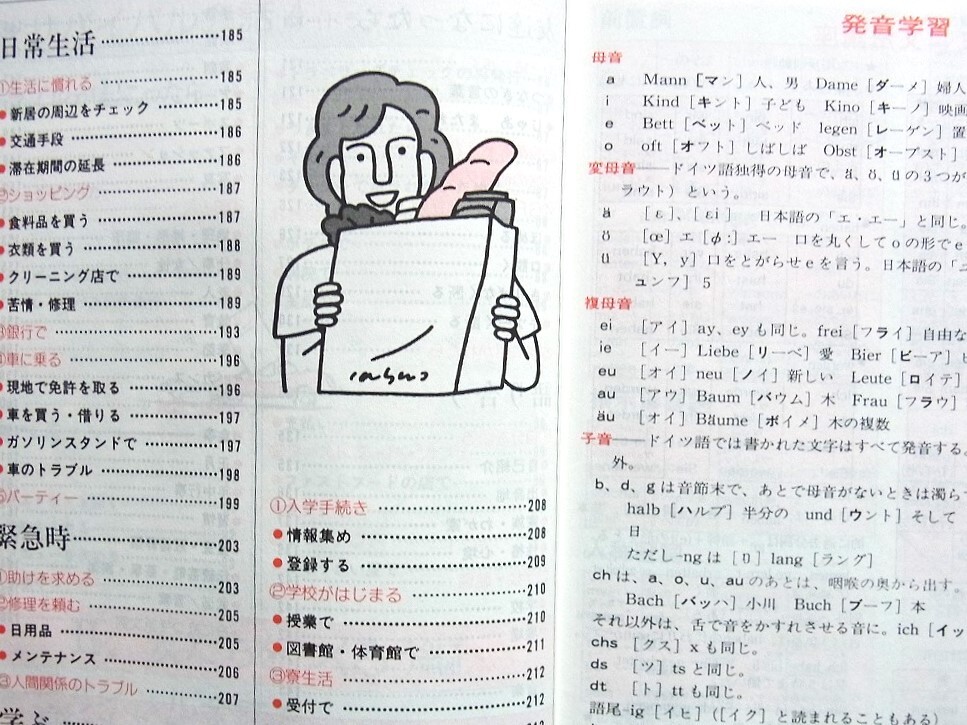 日常生活……185
①生活に慣れる 185
●新居の周辺をチェック……185
●交通手段……186
●滞在期間の延長……186
②ショッピング 187
●食料品を買う……187
●衣類を買う……188
●クリーニング店で……189
●苦情・修理……189
③銀行で 193
④車に乗る 196
●現地で免許を取る……196
●車を買う・借りる……197
●ガソリンスタンドで……197
●車のトラブル……198
⑤パーティー 199
緊急時……203
①助けを求める 203
②修理を頼む 205
●日用品……205
●メンテナンス……206
③人間関係のトラブル 207
学ぶ
①入学手続き 208
●情報集め……208
●登録する……209
②学校がはじまる 210
●授業で……210
●図書館・体育館で……211
③寮生活 212
●受付で……212
発音学習
母音
a Mann [マン] 人、男 Dame [ダーメ] 婦人
i Kind [キント] 子ども Kino [キーノ] 映画
e Bett [ベット] ベッド legen [レーゲン] 置
o oft [オフト] しばしば Obst [オープスト]
変母音——ドイツ語独得の母音で、ä、ö、üの3つが
ラウト）という。
ä [ɛ]、[ɛi] 日本語の「エ・エー」と同じ。
ö [œ] エ [ϕ:] エー 口を丸くしてoの形でe
ü [Y, y] 口をとがらせeを言う。日本語の「ユ
ュンフ] 5
複母音
ei [アイ] ay、eyも同じ。frei [フライ] 自由な
ie [イー] Liebe [リーベ] 愛 Bier [ビーア]
eu [オイ] neu [ノイ] 新しい Leute [ロイテ]
au [アウ] Baum [バウム] 木 Frau [フラウ]
äu [オイ] Bäume [ボイメ] 木の複数
子音——ドイツ語では書かれた文字はすべて発音する。
外。
b、d、gは音節末で、あとで母音がないときは濁ら
halb [ハルプ] 半分の und [ウント] そして
日
ただし-ngは [ŋ] lang [ラング]
chは、a、o、u、auのあとは、咽喉の奥から出す。
Bach [バッハ] 小川 Buch [ブーフ] 本
それ以外は、舌で音をかすれさせる音に。ich [イッ
chs [クス] xも同じ。
ds [ツ] tsと同じ。
dt [ト] ttも同じ。
語尾-ig [イヒ]（[イク] と読まれることもある）